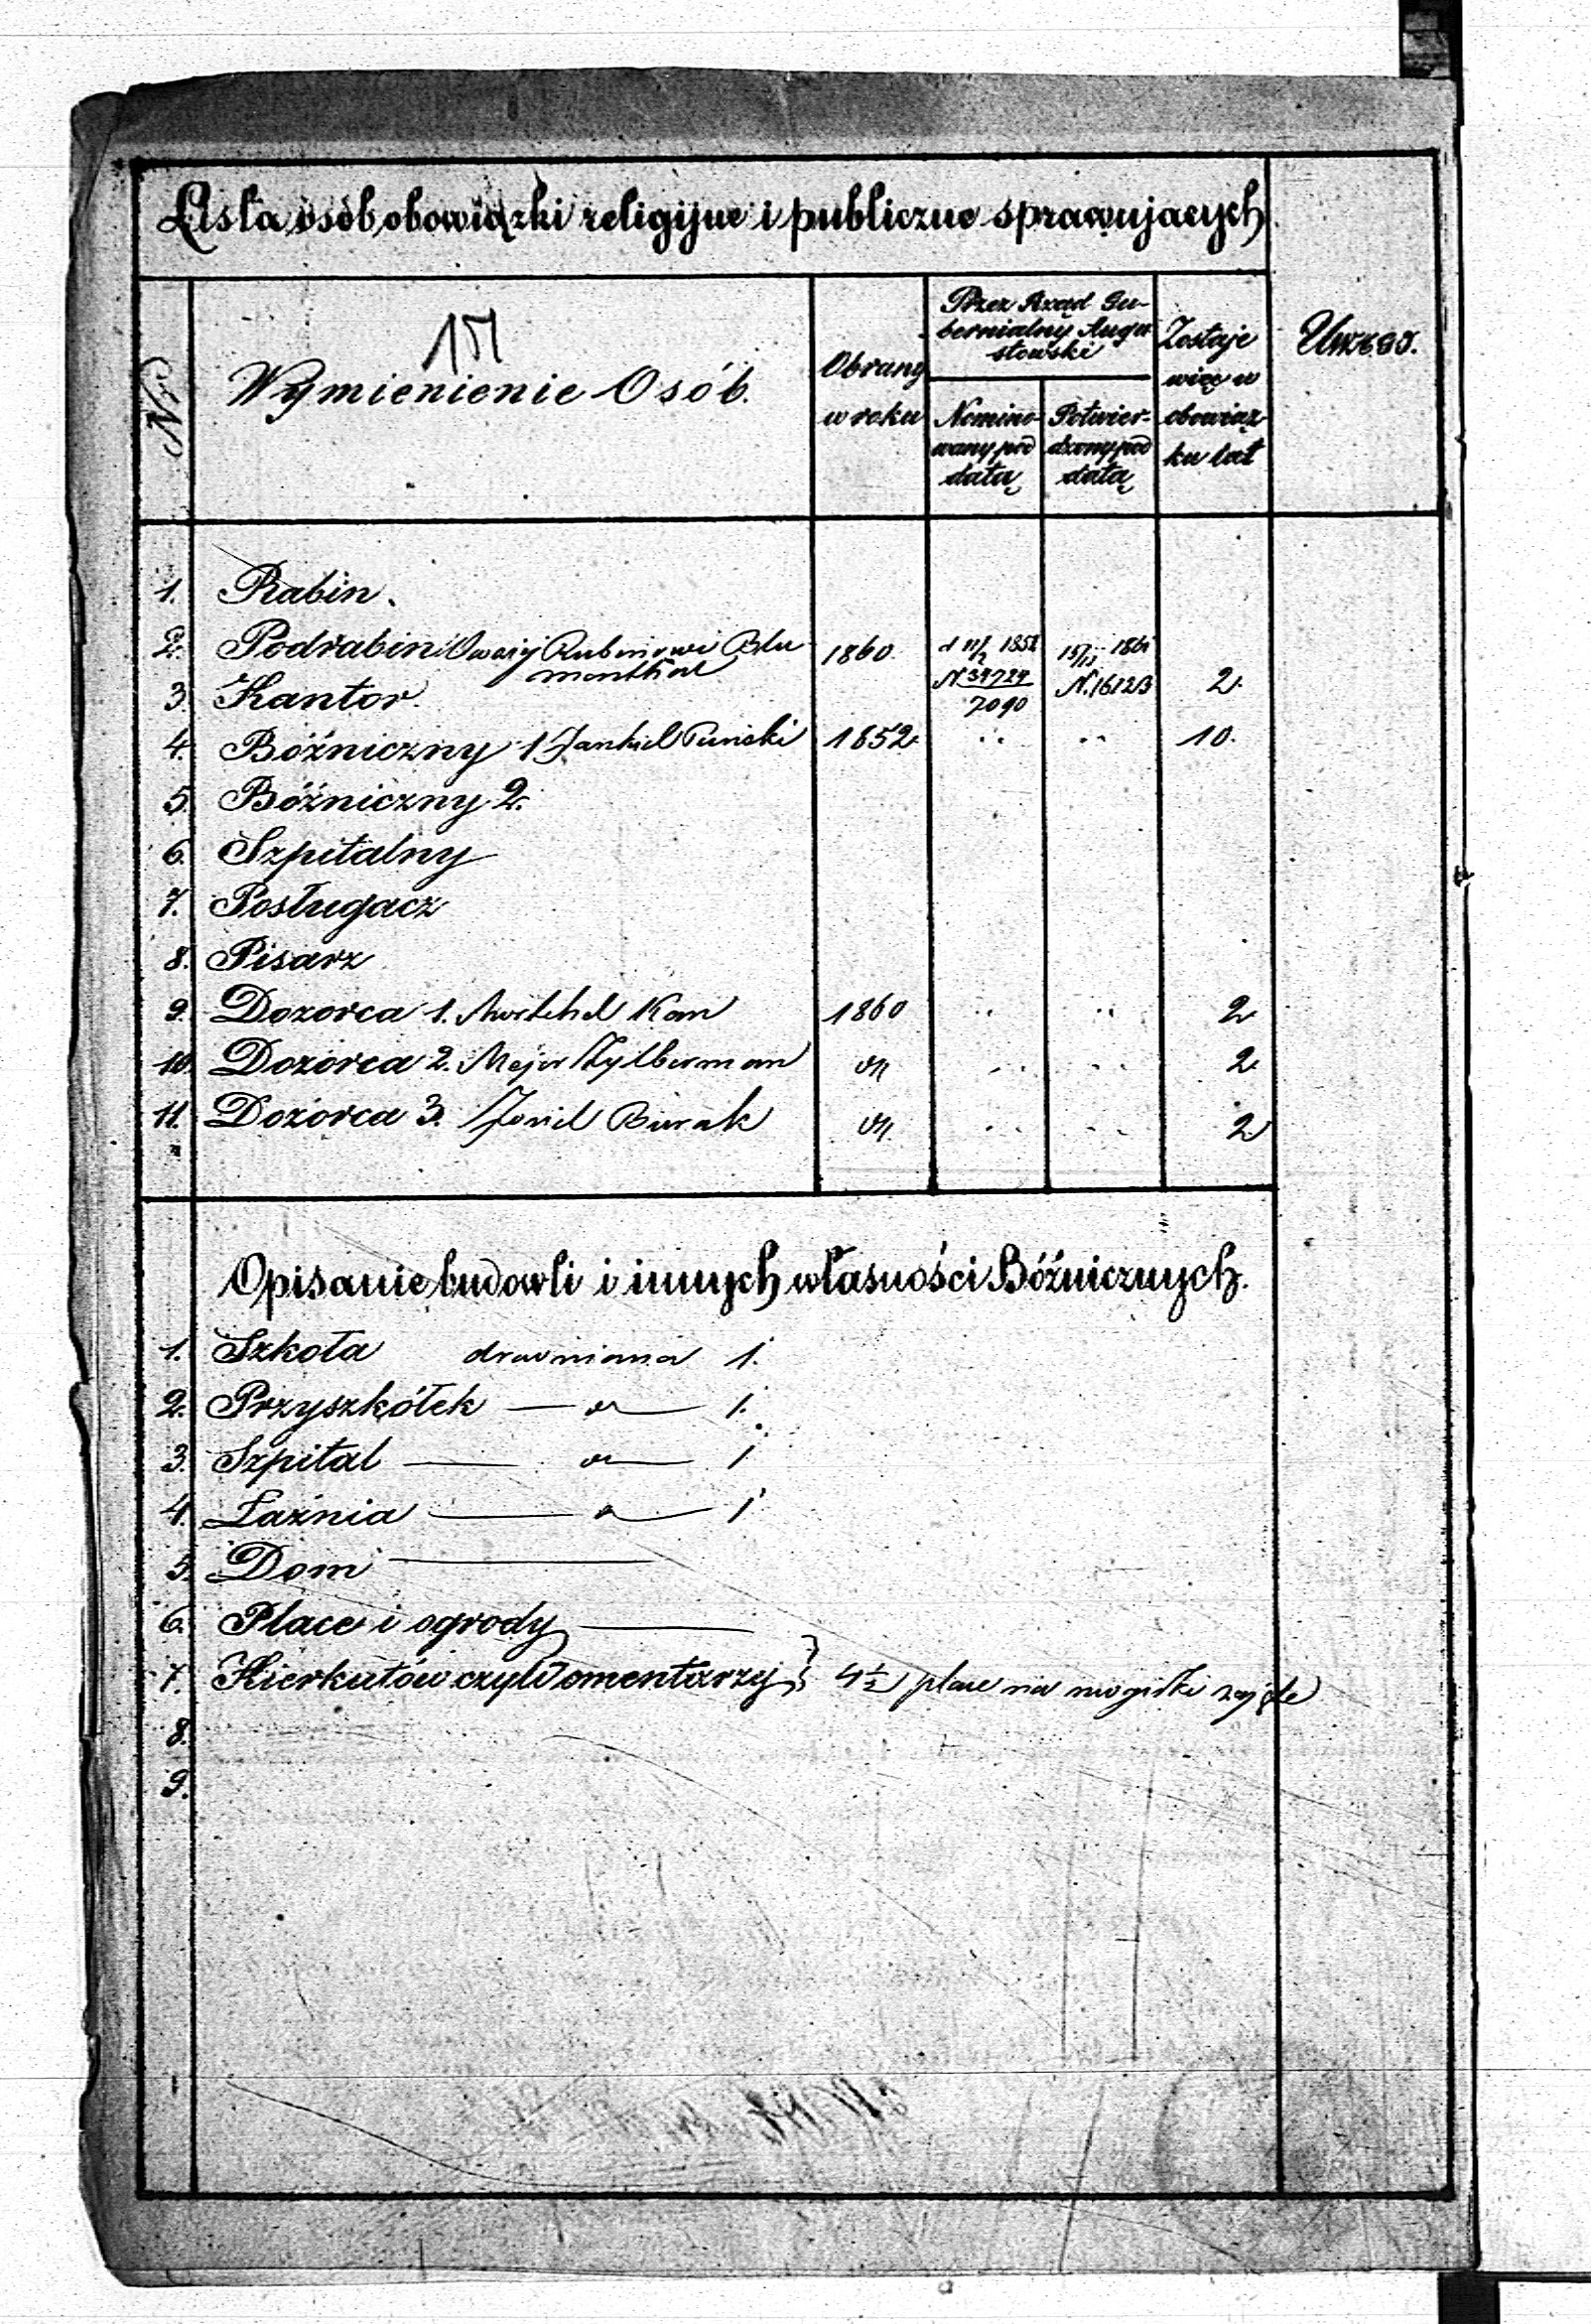 Lista osób obowiązki religijne i publiczne sprawujących
Nr
Wymienienie Osób.
Obrany w roku
Przez Rząd Gu-
bernialny Augu
stowski
Nomino-
wany pod
datą
Potwier-
dzony pod
datą
Zostaje
więc w
obowiąz-
ku lat
1. Rabin.
2. Podrabin Rubinowi Blu 1860. 1858 1861
menthal N 34724 N. 16123 2.
3. Kantor. 7090
4. Bóźniczny 1 Jankiel Puński 1852. " " 10.
5. Bóźniczny 2.
6. Szpitalny
7. Posługacz
8. Pisarz
9. Dozorca 1. Kan 1860 " " 2
10. Dozorca 2. Mejer Zylberman " " 2.
11. Dozorca 3. Burak " " 2
Opisanie budowli i innych własności Bóźnicznych.
1. Szkoła drewniana 1.
2. Przyszkółek — " — 1.
3. Szpital — " — 1
4. Łaźnia — " — 1
5. Dom —
6. Place i ogrody —
7. Kierkutów czyli Cmentarzej } 4 1/2 place na mogiłki zajęte
8.
9.